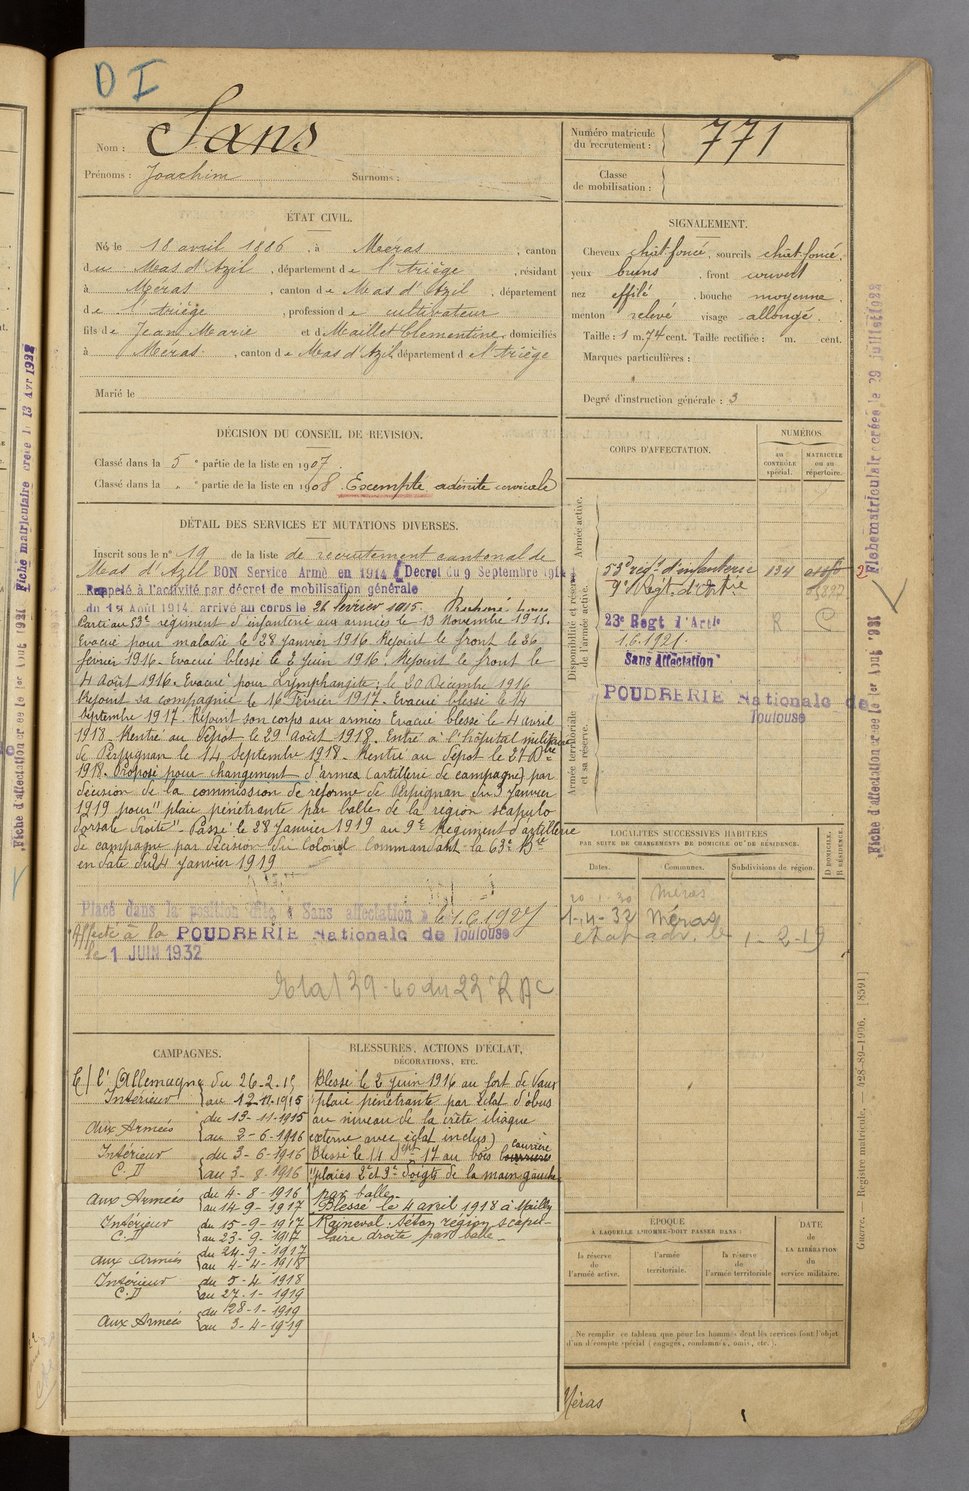 D I
Nom : Sans
Prénoms : Joachim Surnoms :
Numéro matricule
du recrutement : 771
Classe
de mobilisation :
ÉTAT CIVIL.
Né le 18 avril 1886, à Meras, canton
du Mas d'Azil, département de l'Ariège, résidant
à Meras, canton de Mas d'Azil, département
de l'Ariège, profession de cultivateur
fils de Jean Marie et de Maillet Clementine, domiciliés
à Méras, canton de Mas d'Azil, département de l'Ariège
Marié le
SIGNALEMENT.
Cheveux chât-foncé, sourcils chât-foncé,
yeux bruns, front couvert
nez effilé, bouche moyenne
menton relevé visage allongé.
Taille : 1 m. 74 cent. Taille rectifiée : m. cent.
Marques particulières :
Degré d'instruction générale : 3
DÉCISION DU CONSEIL DE REVISION.
Classé dans la 5e partie de la liste en 1907.
Classé dans la e partie de la liste en 1908. Exempté adénite cervicale
DÉTAIL DES SERVICES ET MUTATIONS DIVERSES.
Inscrit sous le n° 19 de la liste de recrutement cantonal de
Mas d'Azil BON Service Armé en 1914 (Decret du 9 Septembre 1914
Rappelé à l'activité par décret de mobilisation générale
du 1er Août 1914. arrivé au corps le 26 février 1915.
Parti au 53e régiment d'infanterie aux armées le 13 Novembre 1915.
Evacué pour maladie le 28 Janvier 1916. Rejoint le front le 26
février 1916. Evacué blessé le 2 Juin 1916. Rejoint le front le
4 Août 1916. Evacué pour Lymphangite, le 20 Décembre 1916
Rejoint sa compagnie le 16 Février 1917. Evacué blessé le 14
Septembre 1917. Rejoint son corps aux armées Evacué blessé le 4 avril
1918. Rentré au Dépôt le 29 août 1918. Entré à l'hôpital militaire
de Perpignan le 14 Septembre 1918. Rentré au Dépôt le 27
1918. Proposé pour changement d'armes (artillerie de campagne) par
décision de la commission de réforme de Perpignan du 3 Janvier
1919 pour "plaie pénétrante par balle de la région scapulo
dorsale droite". Passé le 28 Janvier 1919 au 9e Régiment d'artillerie
de campagne par décision du Colonel Commandant la 63e Bde
en date du 24 Janvier 1919
Placé dans la position dite « Sans affectation » le 1.6.1927
Affecté à la POUDRERIE Nationale de Toulouse
le 1 JUIN 1932
CORPS D'AFFECTATION.
NUMÉROS
au
CONTRÔLE
spécial.
MATRICULE
ou au
répertoire.
Armée active.
Disponibilité et réserve
de l'armée active.
Armée territoriale
et sa réserve.
53e regt d'infanterie 134
9e Régt. d'Artie
23e Régt d'Artie R C
1.6.1921.
Sans Affectation
POUDRERIE Nationale de
Toulouse
LOCALITÉS SUCCESSIVES HABITÉES
PAR SUITE DE CHANGEMENTS DE DOMICILE OU DE RÉSIDENCE.
Dates. Communes. Subdivisions de région.
D DOMICILE.
R RÉSIDENCE.
Méras
1-4-32 Méras
1-2-19
CAMPAGNES.
C/ l'Allemagne du 26-2-15
Intérieur au 12-11-1915
Aux Armées du 13-11-1915
au 2-6-1916
Intérieur du 3-6-1916
C.D au 3-8-1916
Aux Armées du 4-8-1916
au 14-9-1917
Intérieur du 15-9-1917
C.D au 23-9-1917
Aux Armées du 24-9-1917
au 4-4-1918
Intérieur du 5-4-1918
C.D au 27-1-1919
Aux Armées du 28-1-1919
au 3-4-1919
BLESSURES, ACTIONS D'ÉCLAT,
DÉCORATIONS, ETC.
Blessé le 2 Juin 1916 au fort de Vaux
(plaie pénétrante par éclat d'obus
au niveau de la crête iliaque
externe avec éclat inclus)
Blessé le 14 Sept 17 au bois courrière
"plaies 2e et 3e doigts de la main gauche
par balle.
Blessé le 4 avril 1918 à Mailly
Raineval. Séton région scapu-
laire droite par balle.
ÉPOQUE
À LAQUELLE L'HOMME DOIT PASSER DANS :
la réserve
de
l'armée active.
l'armée
territoriale.
la réserve
de
l'armée territoriale
DATE
de
LA LIBÉRATION
du
service militaire.
Ne remplir ce tableau que pour les hommes dont les services font l'objet
d'un décompte spécial (engagés, condamnés, omis, etc.).
Méras
Guerre. — Registre matricule. — 928-89-1906. [8591]
Fiche matriculaire créée le 29 juillet 1928
Fiche d'affectation créée le 1er Août 1931
Fiche matriculaire créée le 13 Avr 1928
Fiche d'affectation créée le 1er Août 1931